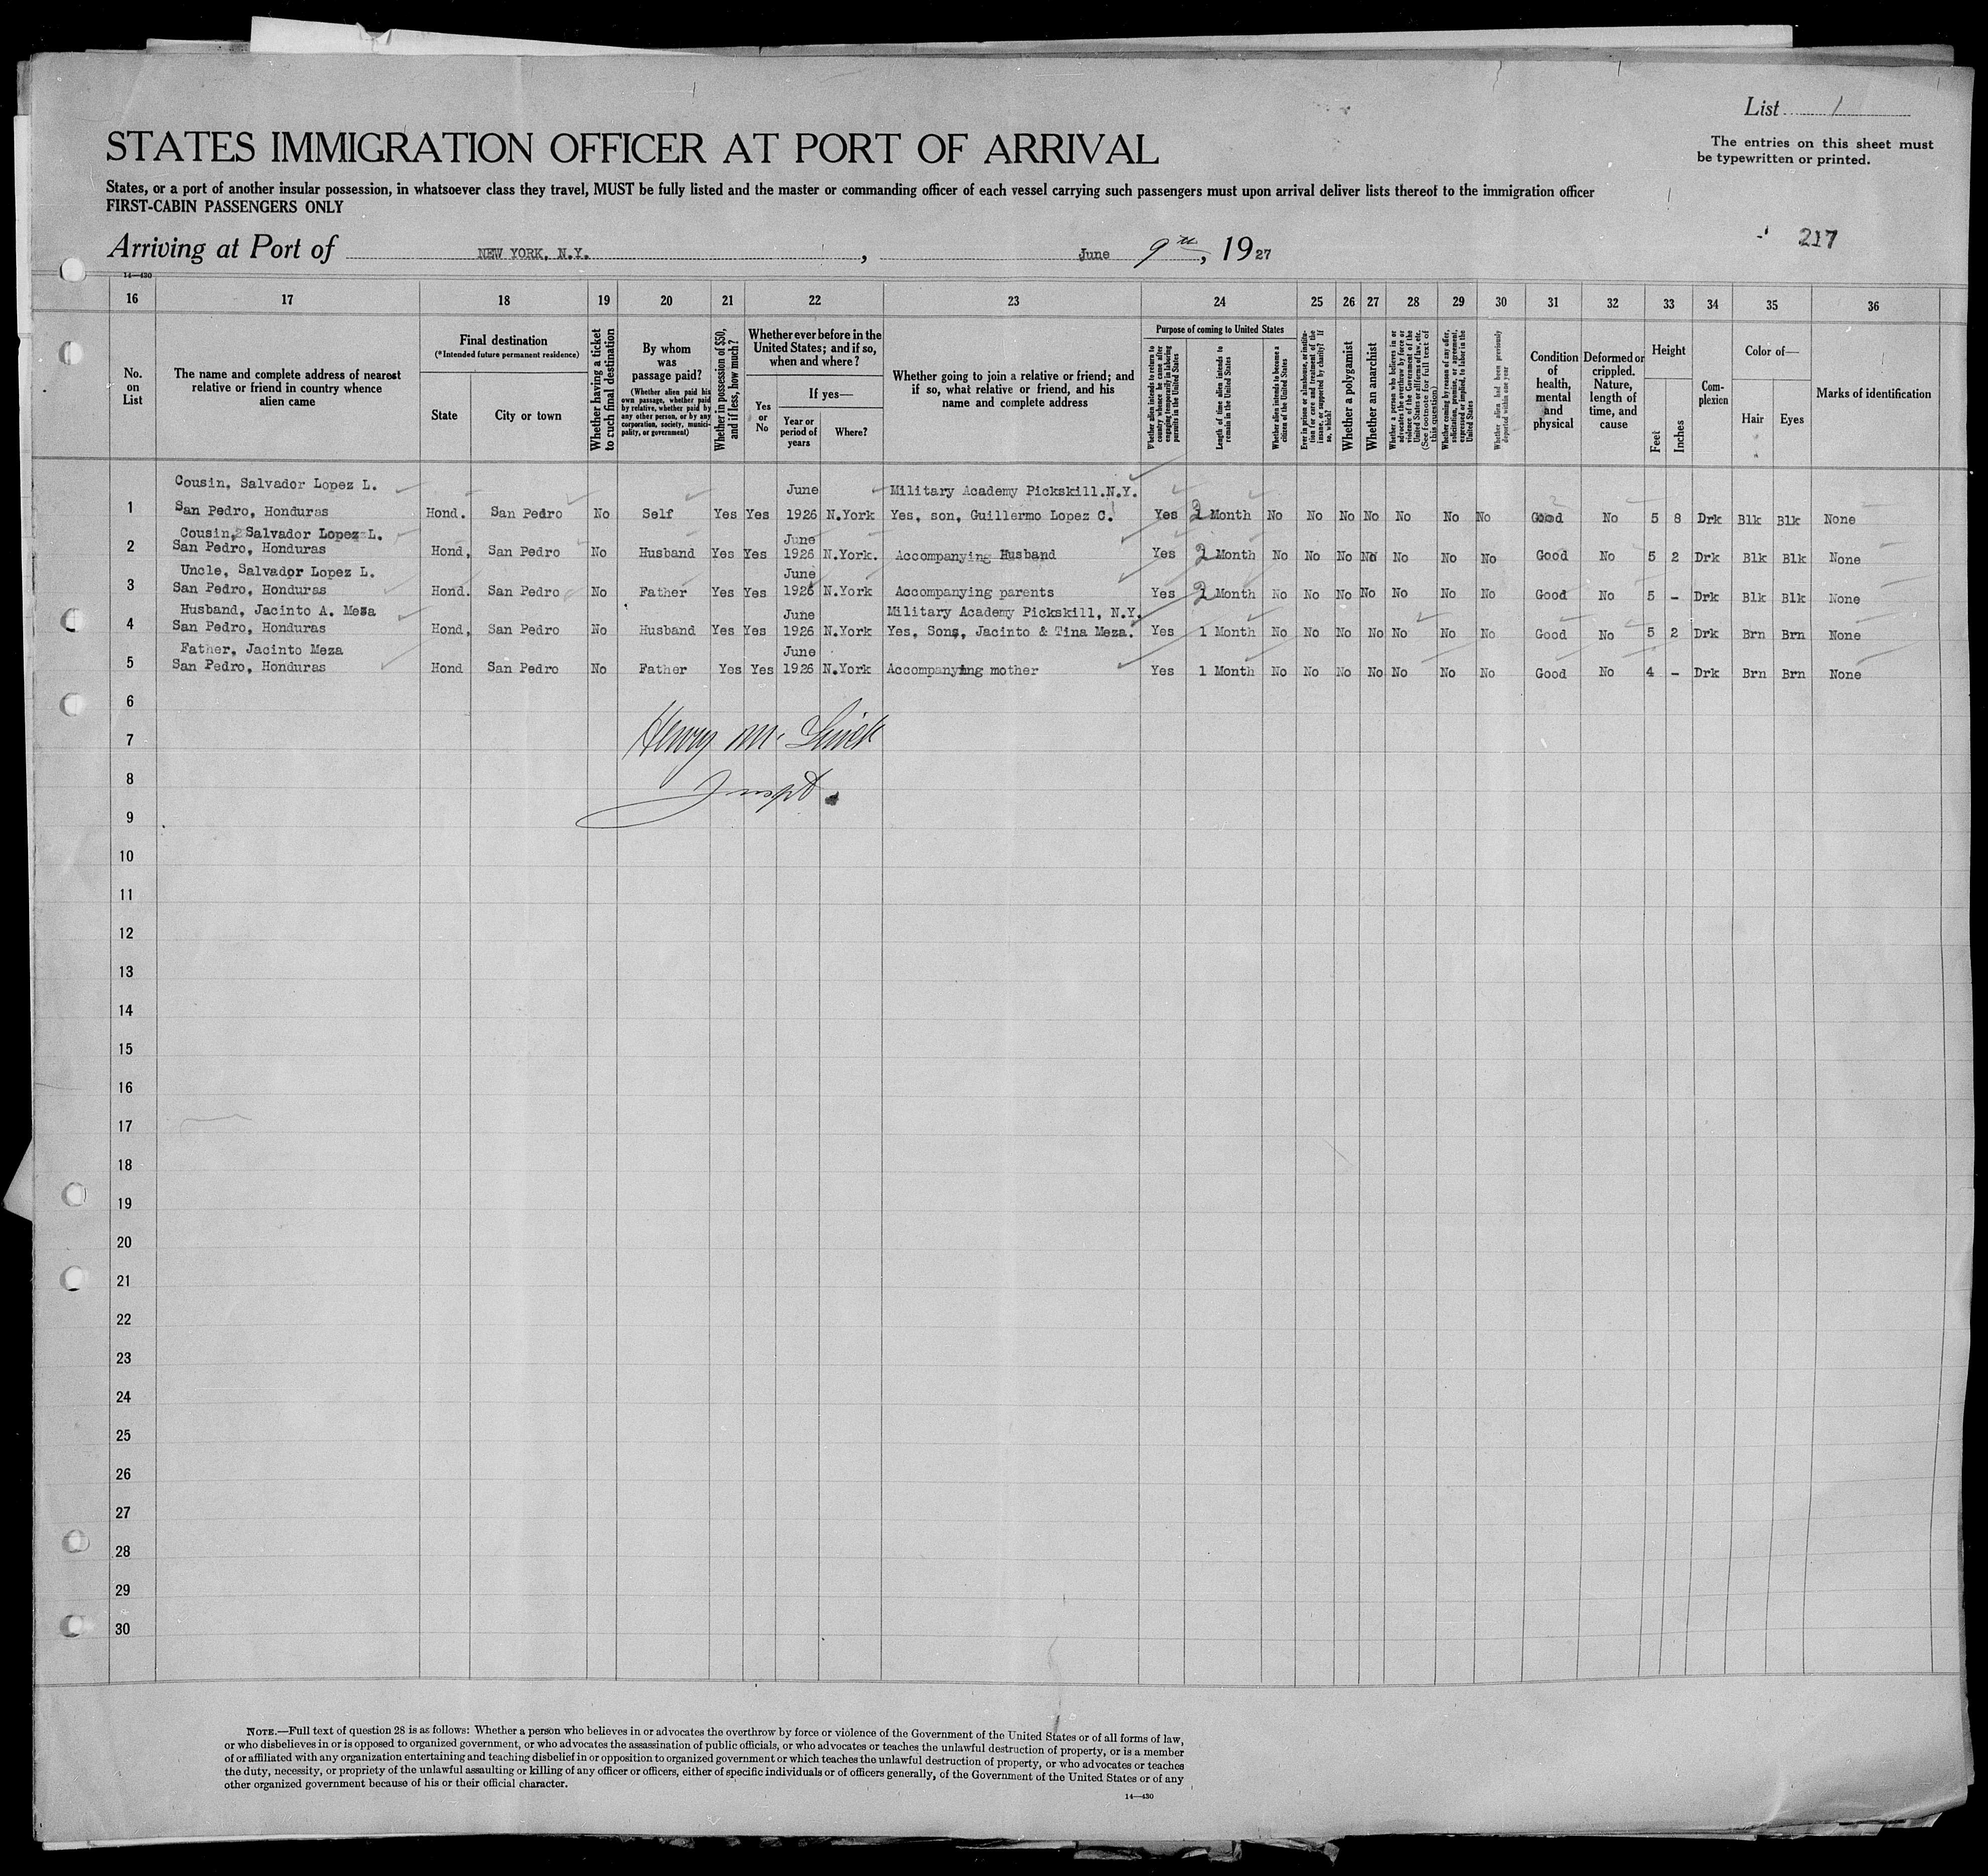 List 1
The entries on this sheet must
be typewritten or printed.
STATES IMMIGRATION OFFICER AT PORT OF ARRIVAL
States, or a port of another insular possession, in whatsoever class they travel, MUST be fully listed and the master or commanding officer of each vessel carrying such passengers must upon arrival deliver lists thereof to the immigration officer
FIRST-CABIN PASSENGERS ONLY
217
Arriving at Port of NEW YORK, N.Y. , June 9th, 1927
14—430
16 17 18 19 20 21 22 23 24 25 26 27 28 29 30 31 32 33 34 35 36
No. on List
The name and complete address of nearest relative or friend in country whence alien came
Final destination
(*Intended future permanent residence)
State
City or town
Whether having a ticket to such final destination
By whom was passage paid?
(Whether alien paid his own passage, whether paid by relative, whether paid by any other person, or by any corporation, society, municipality, or government)
Whether in possession of $50, and if less, how much?
Whether ever before in the United States; and if so, when and where?
Yes or No
If yes—
Year or period of years
Where?
Whether going to join a relative or friend; and if so, what relative or friend, and his name and complete address
Purpose of coming to United States
Whether alien intends to return to country whence he came after engaging temporarily in laboring pursuits in the United States
Length of time alien intends to remain in the United States
Whether alien intends to become a citizen of the United States
Ever in prison or almshouse, or institution for care and treatment of the insane, or supported by charity? If so, which?
Whether a polygamist
Whether an anarchist
Whether a person who believes in or advocates the overthrow by force or violence of the Government of the United States or all forms of law, etc. (See footnote for full text of this question)
Whether coming by reason of any offer, solicitation, promise, or agreement, expressed or implied, to labor in the United States
Whether alien had been previously deported within one year
Condition of health, mental and physical
Deformed or crippled. Nature, length of time, and cause
Height
Feet
Inches
Complexion
Color of—
Hair
Eyes
Marks of identification
Cousin, Salvador Lopez L. June Military Academy Pickskill.N.Y.
1 San Pedro, Honduras Hond. San Pedro No Self Yes Yes 1926 N.York Yes, son, Guillermo Lopez C. Yes 2 Month No No No No No No No Good No 5 8 Drk Blk Blk None
Cousin, Salvador Lopez L. June
2 San Pedro, Honduras Hond, San Pedro No Husband Yes Yes 1926 N.York. Accompanying Husband Yes 2 Month No No No No No No No Good No 5 2 Drk Blk Blk None
Uncle, Salvador Lopez L. June
3 San Pedro, Honduras Hond. San Pedro No Father Yes Yes 1926 N.York Accompanying parents Yes 2 Month No No No No No No No Good No 5 - Drk Blk Blk None
Husband, Jacinto A. Meza June Military Academy Pickskill, N.Y.
4 San Pedro, Honduras Hond, San Pedro No Husband Yes Yes 1926 N.York Yes, Sons, Jacinto & Tina Meza. Yes 1 Month No No No No No No No Good No 5 2 Drk Brn Brn None
Father, Jacinto Meza June
5 San Pedro, Honduras Hond San Pedro No Father Yes Yes 1926 N.York Accompanying mother Yes 1 Month No No No No No No No Good No 4 - Drk Brn Brn None
6
Henry M.
7
8
Inspt.
9
10
11
12
13
14
15
16
17
18
19
20
21
22
23
24
25
26
27
28
29
30
NOTE.—Full text of question 28 is as follows: Whether a person who believes in or advocates the overthrow by force or violence of the Government of the United States or of all forms of law,
or who disbelieves in or is opposed to organized government, or who advocates the assassination of public officials, or who advocates or teaches the unlawful destruction of property, or is a member
of or affiliated with any organization entertaining and teaching disbelief in or opposition to organized government or which teaches the unlawful destruction of property, or who advocates or teaches
the duty, necessity, or propriety of the unlawful assaulting or killing of any officer or officers, either of specific individuals or of officers generally, of the Government of the United States or of any
other organized government because of his or their official character.
14—430